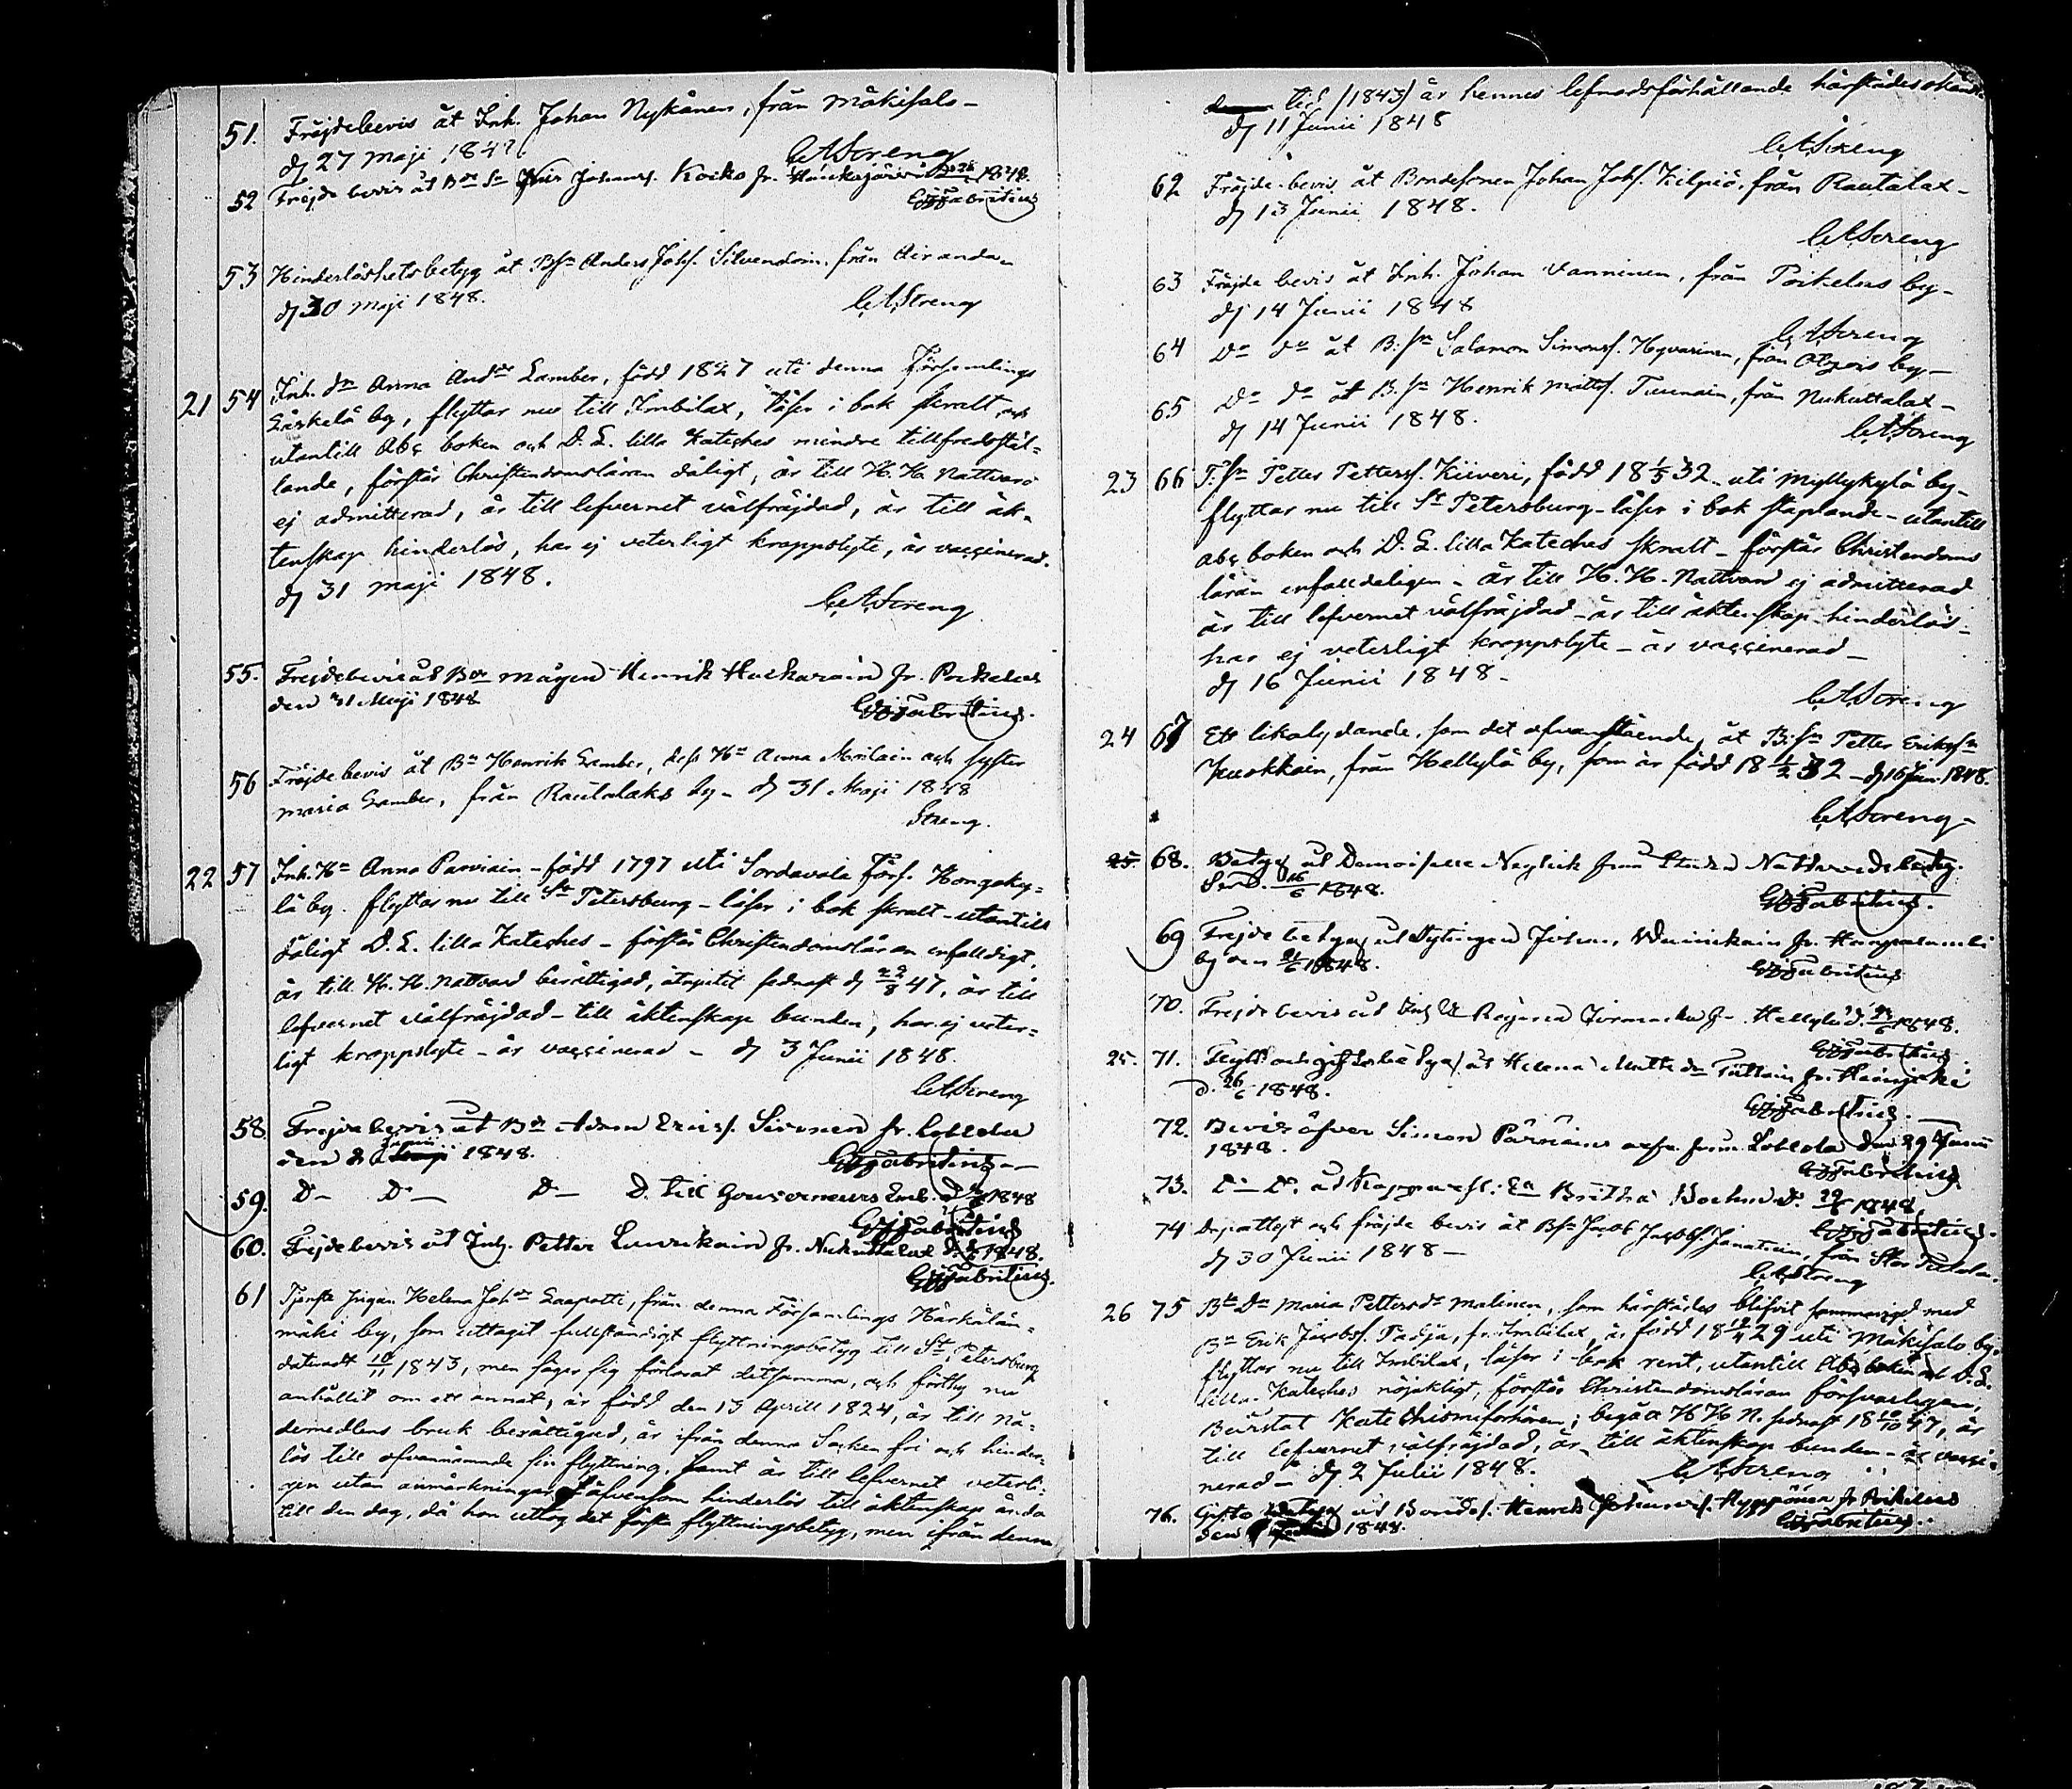 51. Fräjdebevis åt Inh. Johan Nyskänen, från Mäkisalo -
dj 27 Maji 1848.
CAStreng
52 Frejdebevis åt Bde Sn Johans. Koiko fr. 1848.
GJFabritius
53 Hinderlöshetsbetyg åt Bsn Anders Johs. Silvendoin, från Airanda -
dj 30 Maji 1848.
CAStreng
21 54 Inh. dr Anna Anddr Lamber, född 1827 uti denna Församlings
Läskelä by, flyttar nu till Imbilax, läser i bok skralt, och
utantill Abc boken och D. L. lilla Kateches mindre tillfredsstäl-
lande, förstår Christendomsläran dåligt, är till H. H. Nattvard
ej admitterad, är till lefvernet välfräjdad, är till äk-
tenskap hinderlös, har ej veterligt kroppslyte, är vaccinerad.
dj 31 Maji 1848.
CAStreng
55. Frejdebevis åt Bde mågen Henrik Huckarain fr. Poikelus
den 31 Maji 1848
GJFabritius.
56 Fräjdebevis åt Bn Henrik Lamber, dess Hu Anna och syster
Maria Lamber, från Rautalaks by - dj 31 Maji 1848
Streng.
22 57 Inh. Hu Anna Parviain - född 1797 uti Sordavala Förs. Kongaky-
lä by. flyttar nu till St Petersburg - läser i bok skralt - utantill
dåligt D. L. lilla Kateches - förstår Christendomsläran enfalldigt,
är till H. H. Nattvard berättigad, åtnjutit sednast dj 22/8 47, är till
lefvernet välfräjdad - till äktenskap bunden, har ej veter-
ligt kroppslyte - är vaccinerad - dj 3 Junii 1848.
CAStreng
58. Frejdebevis åt Bde Adam Erics. Sirenen fr.
den Junii 1848.
GJFabritius
59. D- D- D- D. till Gouverneurs Emb. 1848
GJFabritius
60. Frejdebevis åt Inh. Petter Laurikain fr. Nukuttalax 1848.
GJFabritius.
61 Tjenste pigan Helena Johdr Laapotti, från denna Församlings Härkälän-
mäki by, som uttagit fullständigt flyttningsbetyg till St. Petersburg
dateradt 10/11 1843, men säger sig förlorat detsamma, och förthy nu
anhållit om ett annat, är född den 13 Aprill 1824, är till Nå-
demedlens bruk berättigad, är ifrån denna Socken fri och hinder-
lös till ofvannämnde sin flyttning, samt är till lefvernet veterli-
gen utan anmärkningar, äfvensom hinderlös till äktenskap ända
till den dag, då hon uttog det första flyttningsbetyg, men ifrån denna
tid (1843) är hennes lefnadsförhållande härstädes okändt
dj 11 Junii 1848
CAStreng
62 Fräjde-bevis åt Bondesonen Johan Johs. Kilpiö, från Rautalax -
dj 13 Junii 1848.
CAStreng
63 Fräjde bevis åt Inh. Johan Vanninen, från Poikelus by -
dj 14 Junii 1848
CAStreng
64 Do do åt B. sn Salomon Simonss. Hyvärinen, från by -
65 Do do åt B. sn Henrik Matts. Tuunain, från Nukuttalax -
dj 14 Junii 1848.
CAStreng
23 66 T. sn Petter Petterss. Kiiveri, född 18 1/5 32 uti Myllykylä by -
flyttar nu till St Petersburg - läser i bok staplande - utantill
abc boken och D. L. lilla Kateches skralt - förstår Christendoms
läran enfalldeligen - är till H. H. Nattvard ej admitterad
är till lefvernet välfräjdad - är till äktenskap hinderlös -
har ej veterligt kroppslyte - är vaccinerad -
dj 16 Junii 1848 -
CAStreng
24 67 Ett likalydande, som det ofvanstående, åt B. sn Petter Erikssn
från Hellylä by, som är född 18 1/2 32 - dj 16 Jun. 1848.
CAStreng -
25. 68. Betyg åt Demoiselle från Nattvardsbetyg.
16/6 1848.
GJFabritius.
69 Frejdebetyg åt Johan
by den 1848.
GJFabritius
70. Frejdebevis åt Inh. Regina fr. Hellylä d. 1848.
GJFabritius
25. 71. Flytt åt Helena Matts dr fr.
d. 26/6 1848.
GJFabritius.
72. Bevis öfver Simon från den 29 Junii
1848.
GJFabritius.
73. D- D- åt Britha d. 29/6 1848.
GJFabritius.
74 och fräjde bevis åt Bsn Jacob Jacobss. från Stor
dj 30 Junii 1848 -
CAStreng
26 75 Bde Dr Maria Pettersdr Malinen, som härstädes blifvit sammanvigd med
Bn Erik Jacobss. Padja, fr. Imbilax, är född 1829 uti Mäkisalo by,
flyttar nu till Imbilax, läser i bok rent, utantill Abc boken och D. L.
lilla Kateches nöjaktigt, förstår Christendomsläran försvarligen,
Bevistat Katechismiförhören, begått H H N. sednast 18 47, är
till lefvernet välfräjdad, är till äktenskap bunden - är vacci-
nerad - dj 2 Julii 1848.
CAStreng
76. åt Bondes. Henrik Johanss. Hyppönen fr Poikelus
den 1848.
GJFabritius.